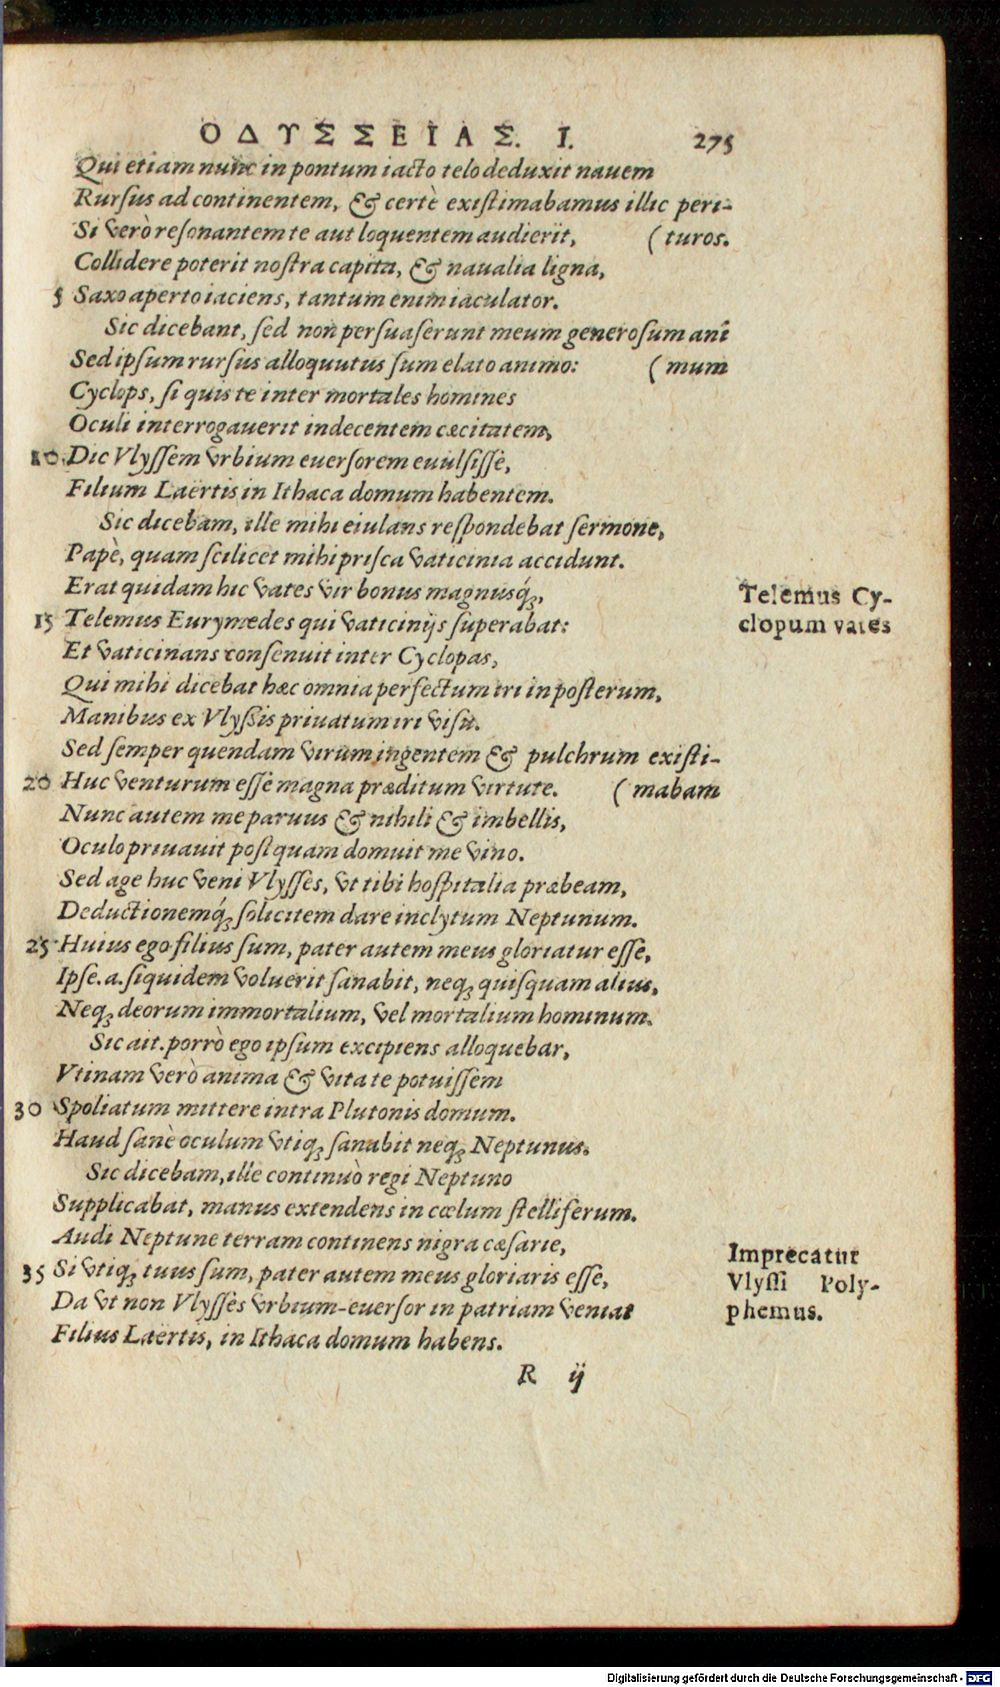 ΟΔΥΣΣΕΙΑΣ. Ι. 275
Qui etiam nunc in pontum iacto telo deduxit nauem
Rursus ad continentem, & certè existimabamus illic peri-
Si verò resonantem te aut loquentem audierit, (turos.
Collidere poterit nostra capita, & naualia ligna,
5 Saxo aperto iaciens, tantum enim iaculator.
Sic dicebant, sed non persuaserunt meum generosum anî
Sed ipsum rursus alloquutus sum elato animo: (mum
Cyclops, si quis te inter mortales homines
Oculi interrogauerit indecentem cæcitatem,
10. Dic Vlyssem vrbium euersorem euulsisse,
Filium Laërtis in Ithaca domum habentem.
Sic dicebam, ille mihi eiulans respondebat sermone,
Papè, quam scilicet mihi prisca vaticinia accidunt.
Erat quidam hic vates vir bonus magnusq́;,
Telemus Cy-
clopum vates
15 Telemus Eurymedes qui vaticinijs superabat:
Et vaticinans consenuit inter Cyclopas,
Qui mihi dicebat hæc omnia perfectum iri in posterum,
Manibus ex Vlyssis priuatum iri visu.
Sed semper quendam virum ingentem & pulchrum existi-
20 Huc venturum esse magna præditum virtute. (mabam
Nunc autem me paruus & nihili & imbellis,
Oculo priuauit postquam domuit me vino.
Sed age huc veni Vlysses, vt tibi hospitalia præbeam,
Deductionemq́; solicitem dare inclytum Neptunum.
25 Huius ego filius sum, pater autem meus gloriatur esse,
Ipse. a. siquidem voluerit sanabit, neq; quisquam alius,
Neq; deorum immortalium, vel mortalium hominum.
Sic ait. porrò ego ipsum excipiens alloquebar,
Vtinam verò anima & vita te potuissem
30 Spoliatum mittere intra Plutonis domum.
Haud sanè oculum vtiq; sanabit neq; Neptunus.
Sic dicebam, ille continuò regi Neptuno
Supplicabat, manus extendens in cœlum stelliferum.
Audi Neptune terram continens nigra cæsarie,
Imprecatur
Vlyssi Poly-
phemus.
35 Si vtiq; tuus sum, pater autem meus gloriaris esse,
Da vt non Vlysses vrbium-euersor in patriam veniat
Filius Laërtis, in Ithaca domum habens.
R ij
Digitalisierung gefördert durch die Deutsche Forschungsgemeinschaft - DFG